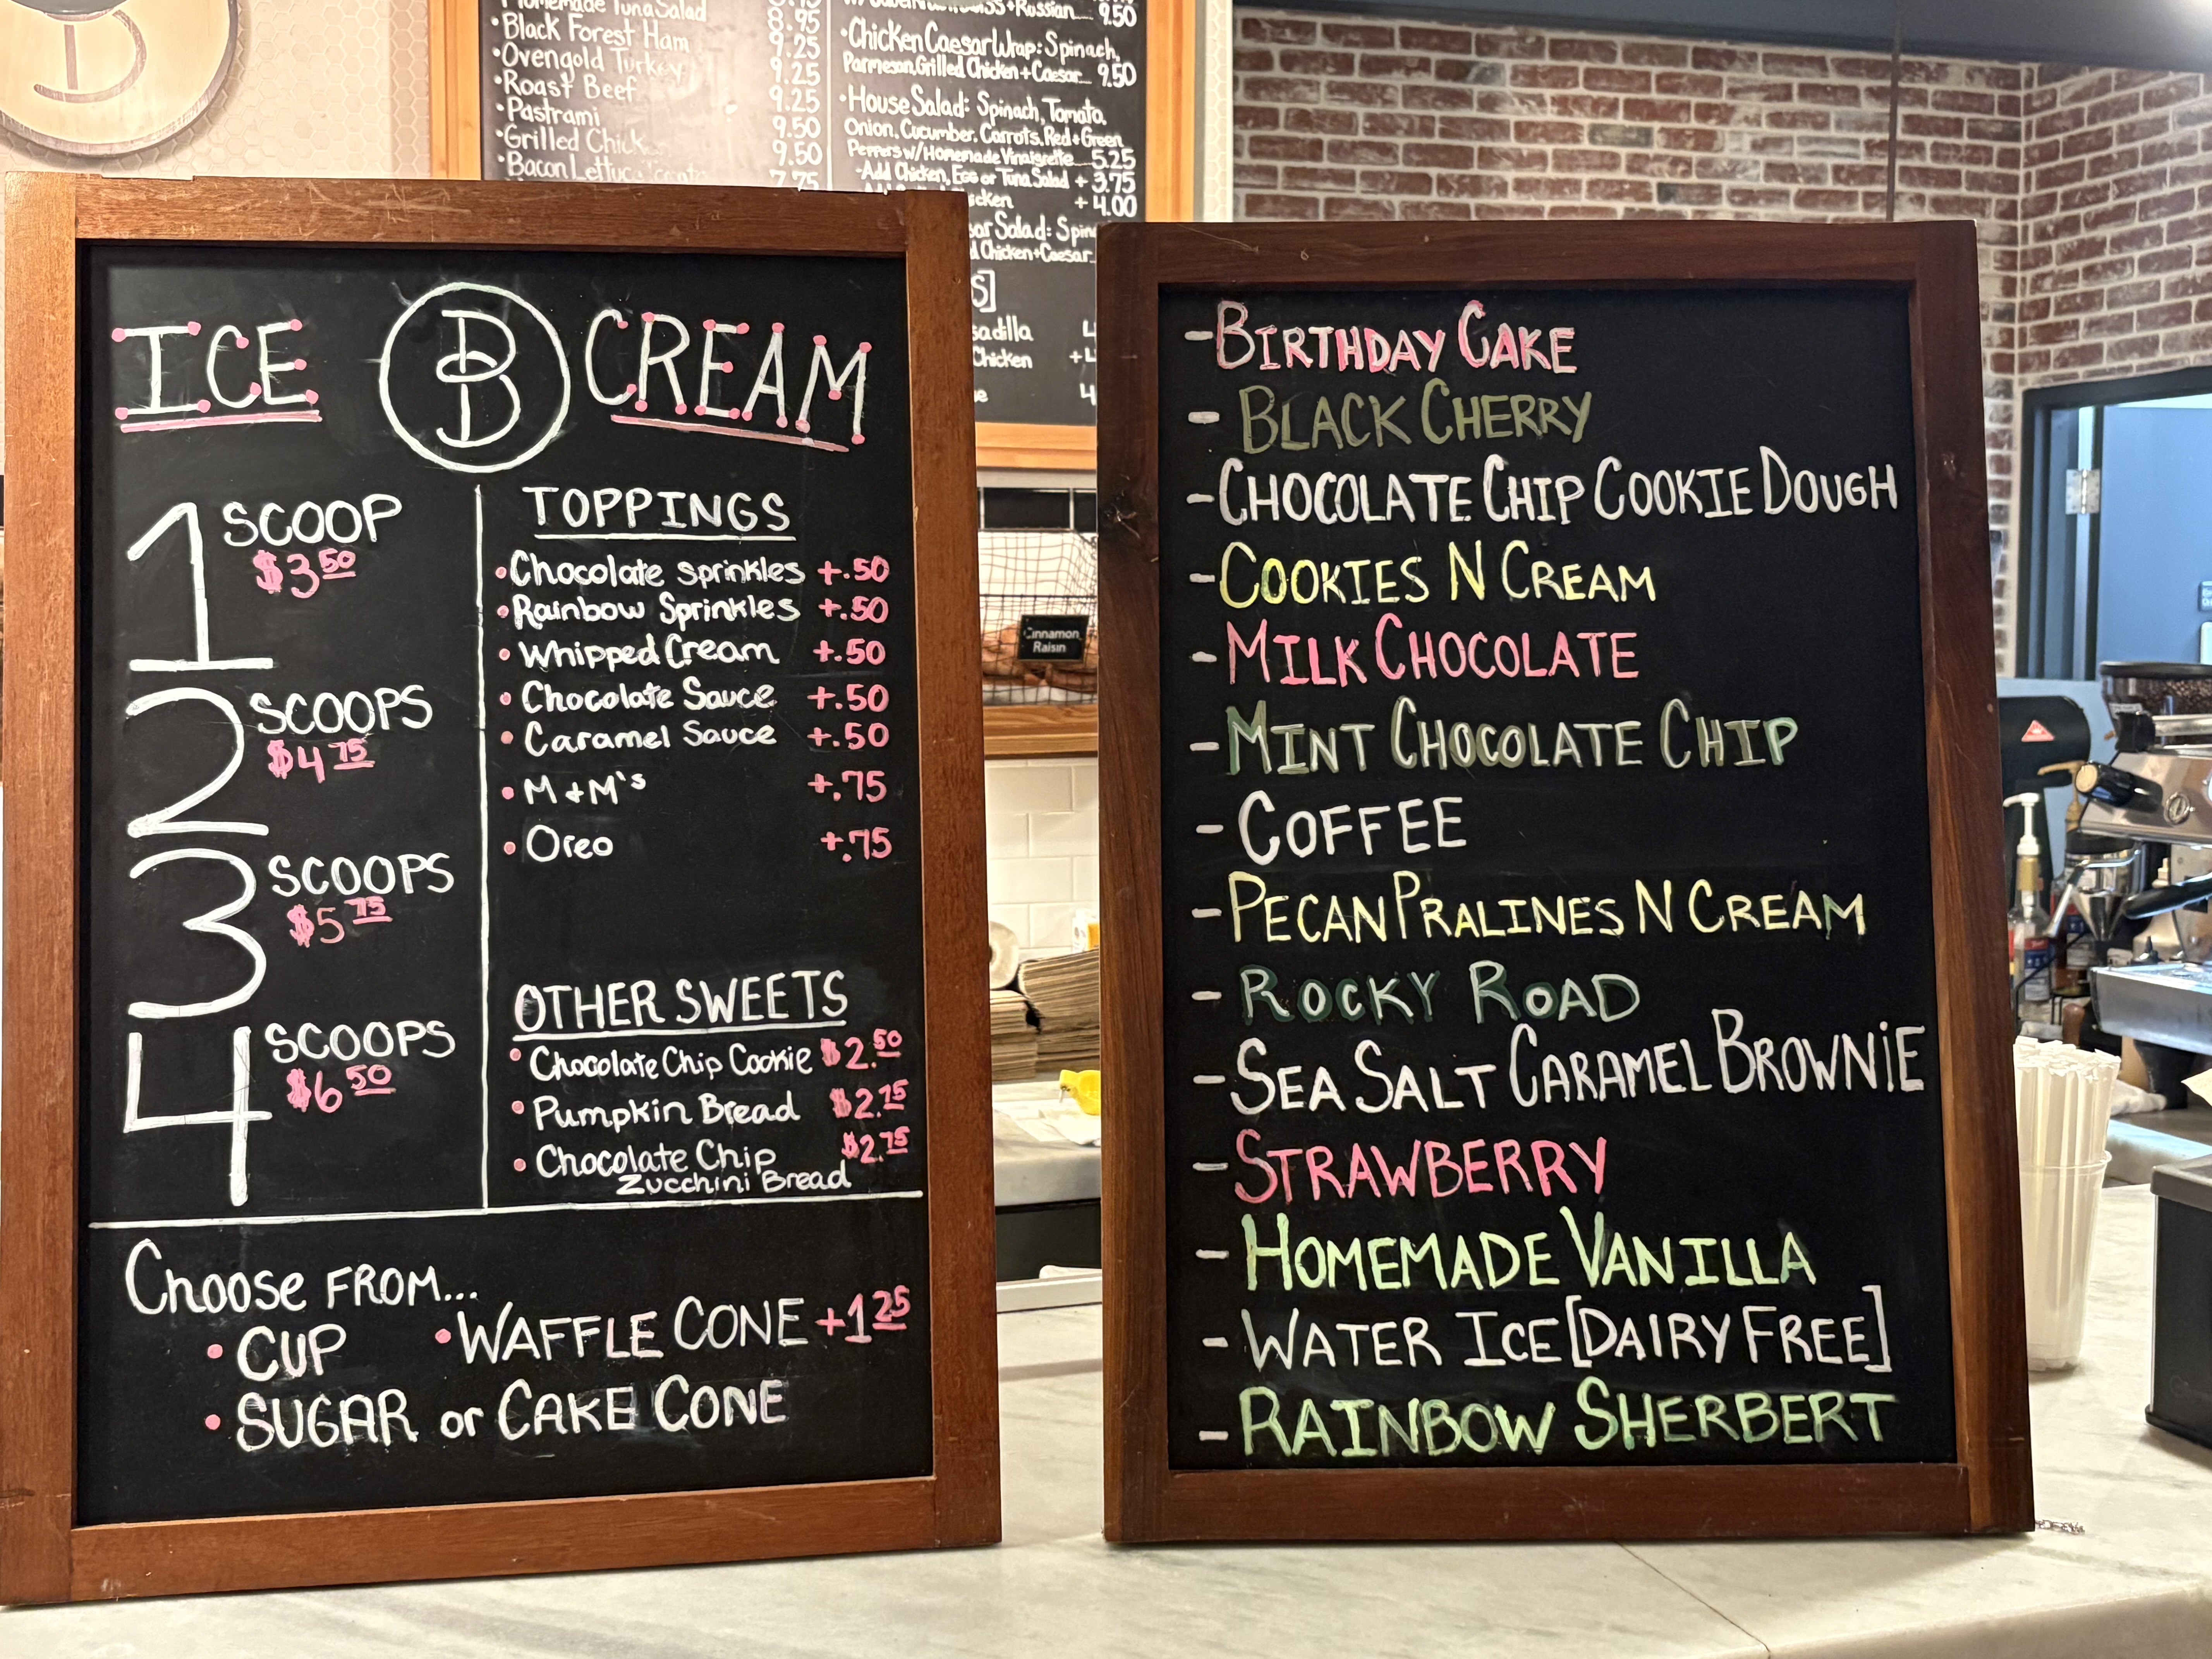 Homemade Tuna Salad
•Black Forest Ham 8.95
•Ovengold Turkey 9.25
•Roast Beef 9.25
•Pastrami 9.25
•Grilled 9.50
•Bacon 9.50
7.75
+Russian 9.50
•Chicken Caesar Wrap: Spinach,
Parmesan, Grilled Chicken + Caesar 9.50
•House Salad: Spinach, Tomato,
Onion, Cucumber, Carrots, Red + Green
Peppers w/ Homemade Vinaigrette 5.25
-Add Chicken, Egg or Tuna Salad + 3.75
+ 4.00
Salad:
Chicken + Caesar
Chicken
ICE B CREAM
1 SCOOP
$3 50
2 SCOOPS
$4 75
3 SCOOPS
$5 75
4 SCOOPS
$6 50
TOPPINGS
• Chocolate sprinkles +.50
• Rainbow Sprinkles +.50
• Whipped Cream +.50
• Chocolate Sauce +.50
• Caramel Sauce +.50
• M+M's +.75
• Oreo +.75
OTHER SWEETS
• Chocolate Chip Cookie $2.50
• Pumpkin Bread $2.75
• Chocolate Chip $2.75
Zucchini Bread
Choose FROM...
• CUP • WAFFLE CONE +1 25
• SUGAR or CAKE CONE
Cinnamon
Raisin
-BIRTHDAY CAKE
- BLACK CHERRY
-CHOCOLATE CHIP COOKIE DOUGH
-COOKIES N CREAM
-MILK CHOCOLATE
-MINT CHOCOLATE CHIP
- COFFEE
-PECAN PRALINES N CREAM
- ROCKY ROAD
-SEA SALT CARAMEL BROWNIE
-STRAWBERRY
- HOMEMADE VANILLA
- WATER ICE [DAIRY FREE]
- RAINBOW SHERBERT